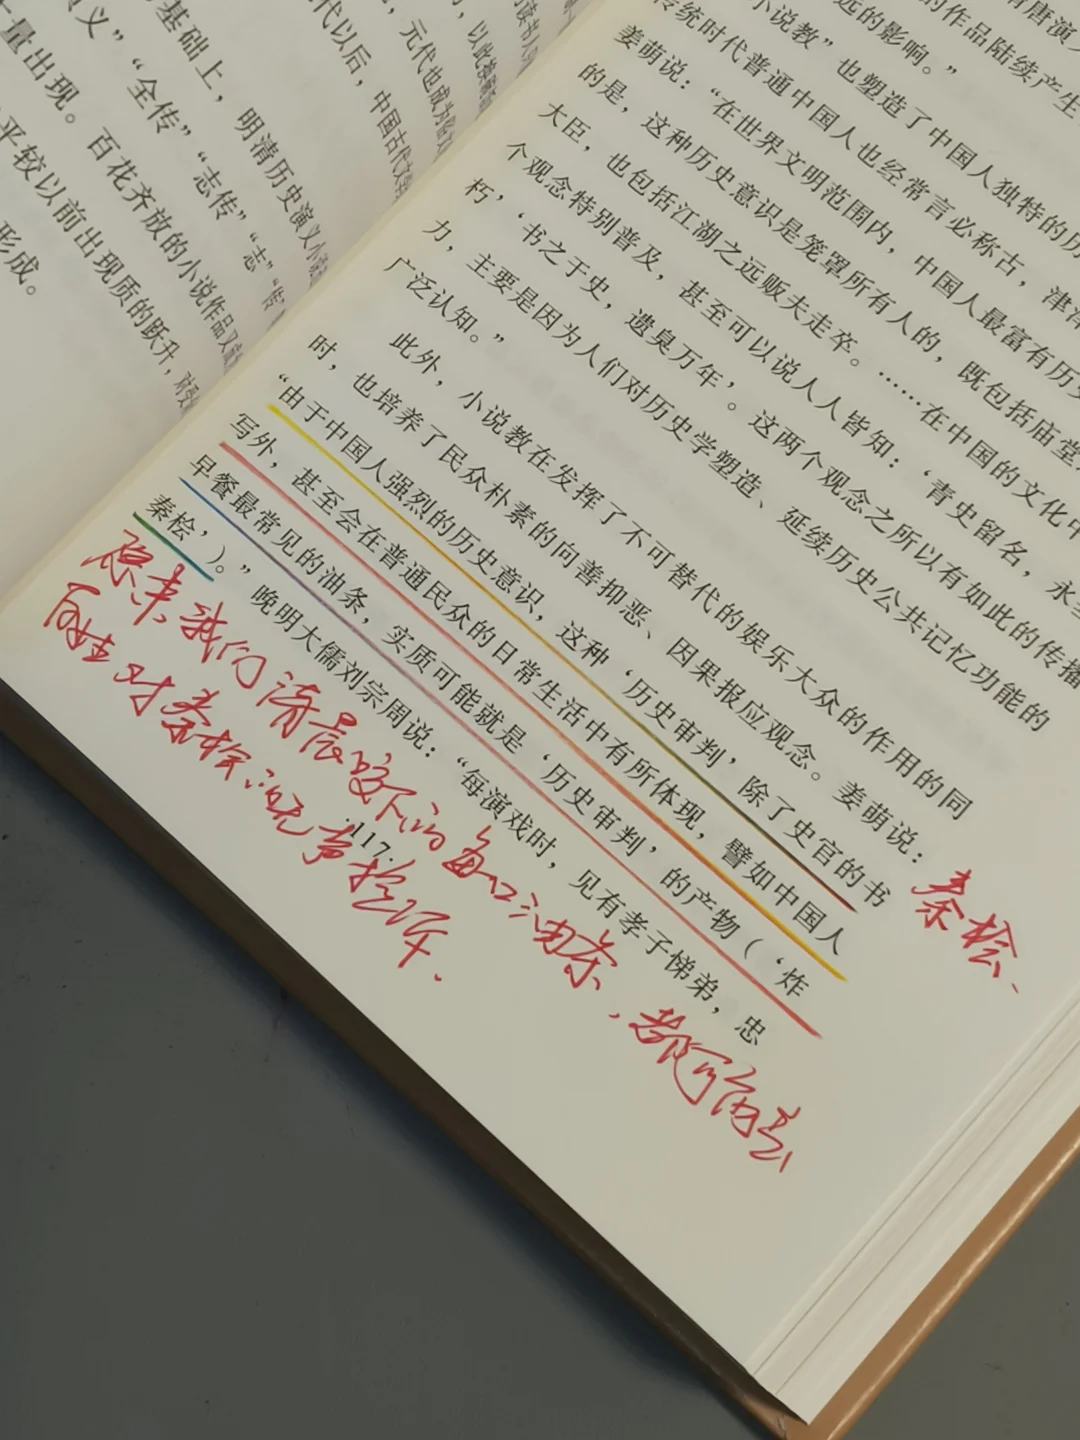 基础上，明清历史演义小说
义”“全传”“志传”“志”“传”
量出现。百花齐放的小说作品又
平较以前出现质的跃升，
形成。
代以后，中国古代文学
元代也成为
以此
唐演义
的作品陆续产生
远的影响。”
小说教”也塑造了中国人独特的历
传统时代普通中国人也经常言必称古，津津
姜萌说：“在世界文明范围内，中国人最富有历史
的是，这种历史意识是笼罩所有人的，既包括庙堂
大臣，也包括江湖之远贩夫走卒。……在中国的文化中
个观念特别普及，甚至可以说人人皆知：‘青史留名，永
朽’，‘书之于史，遗臭万年’。这两个观念之所以有如此的传播
力，主要是因为人们对历史学塑造、延续历史公共记忆功能的
广泛认知。”
此外，小说教在发挥了不可替代的娱乐大众的作用的同
时，也培养了民众朴素的向善抑恶、因果报应观念。姜萌说：
“由于中国人强烈的历史意识，这种‘历史审判’除了史官的书
写外，甚至会在普通民众的日常生活中有所体现，譬如中国人
早餐最常见的油条，实质可能就是‘历史审判’的产物（‘炸
秦桧’）。”晚明大儒刘宗周说：“每演戏时，见有孝子悌弟，忠
秦桧、
原来我们清晨咬下的每口油条，都可能是
百姓对秦桧的无声抢讦.
·117·